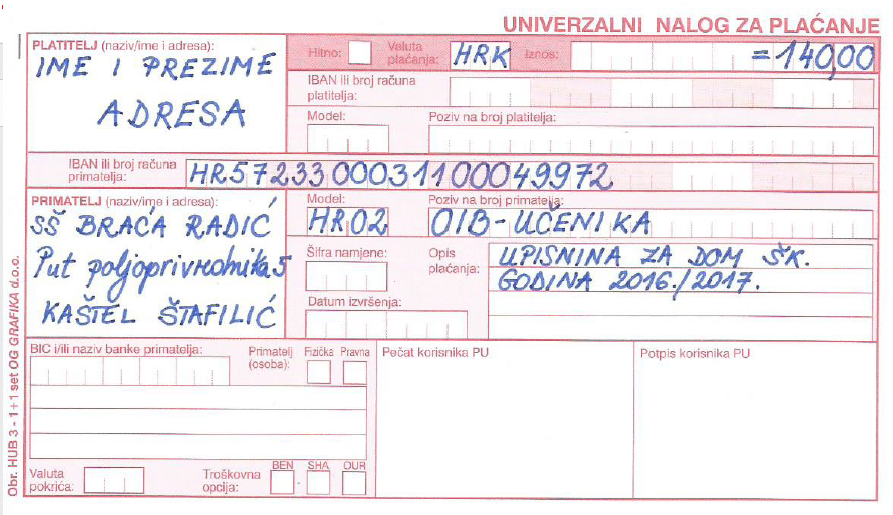 UNIVERZALNI NALOG ZA PLAĆANJE
PLATITELJ (naziv/ime i adresa):
IME I PREZIME
ADRESA
Hitno:
Valuta plaćanja: HRK
Iznos: =140,00
IBAN ili broj računa
platitelja:
Model:
Poziv na broj platitelja:
IBAN ili broj računa
primatelja:
HR5723300031100049972
PRIMATELJ (naziv/ime i adresa):
SŠ BRAĆA RADIĆ
Put poljoprivrednika 5
KAŠTEL ŠTAFILIĆ
Model:
HR02
Poziv na broj primatelja:
OIB-UČENIKA
Šifra namjene:
Opis
plaćanja:
UPISNINA ZA DOM ŠK.
GODINA 2016./2017.
Datum izvršenja:
BIC i/ili naziv banke primatelja:
Primatelj
(osoba):
Fizička Pravna
Pečat korisnika PU
Potpis korisnika PU
Valuta
pokrića:
Troškovna
opcija:
BEN SHA OUR
Obr. HUB 3 - 1+1 set OG GRAFIKA d.o.o.